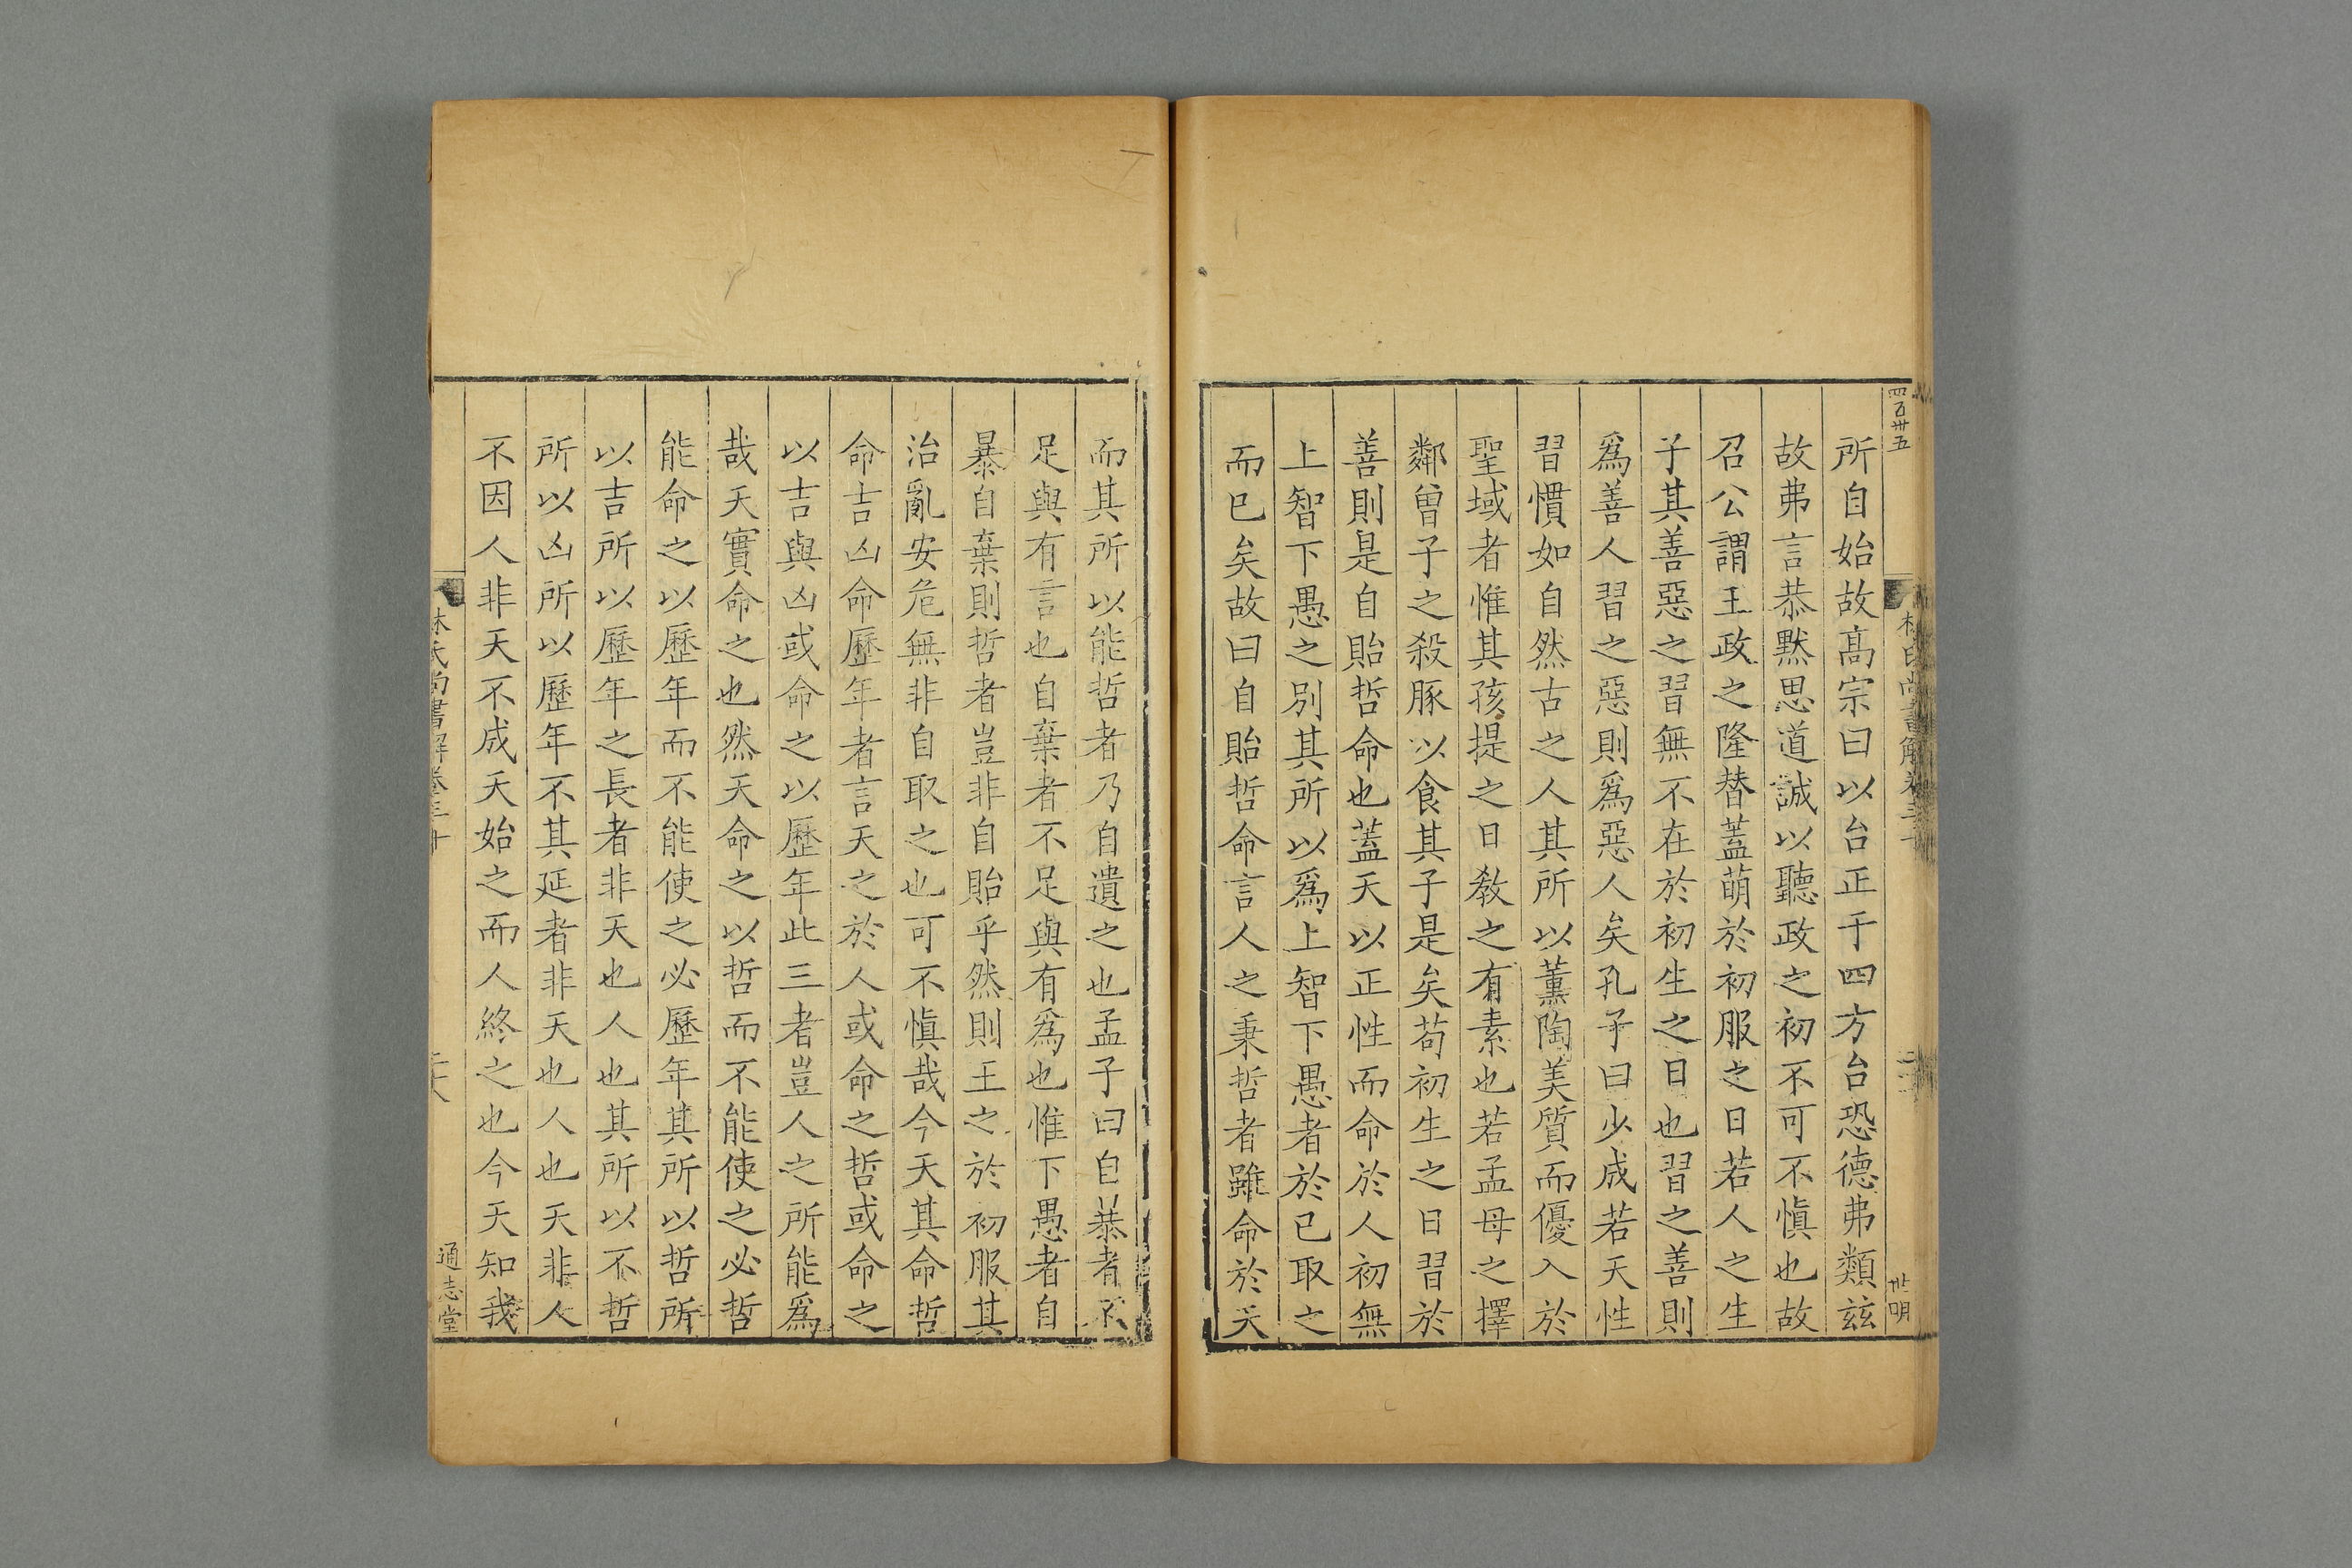 四百卅五
世明
所自始故高宗曰以台正于四方台恐德弗類兹
故弗言恭默思道誠以聽政之初不可不慎也故
召公謂王政之隆替蓋萌於初服之日若人之生
子其善惡之習無不在於初生之日也習之善則
爲善人習之惡則爲惡人矣孔子曰少成若天性
習慣如自然古之人其所以薰陶美質而優入於
聖域者惟其孩提之日教之有素也若孟母之擇
鄰曾子之殺豚以食其子是矣苟初生之日習於
善則是自貽哲命也蓋天以正性而命於人初無
上智下愚之別其所以爲上智下愚者於已取之
而已矣故曰自貽哲命言人之秉哲者雖命於天
而其所以能哲者乃自遺之也孟子曰自暴者不
足與有言也自棄者不足與有爲也惟下愚者自
暴自棄則哲者豈非自貽乎然則王之於初服其
治亂安危無非自取之也可不慎哉今天其命哲
命吉凶命歷年者言天之於人或命之哲或命之
以吉與凶或命之以歷年此三者豈人之所能爲
哉天實命之也然天命之以哲而不能使之必哲
能命之以歷年而不能使之必歷年其所以哲所
以吉所以歷年之長者非天也人也其所以不哲
所以凶所以歷年不其延者非天也人也天非人
不因人非天不成天始之而人終之也今天知我
林氏尚書解卷三十
通志堂